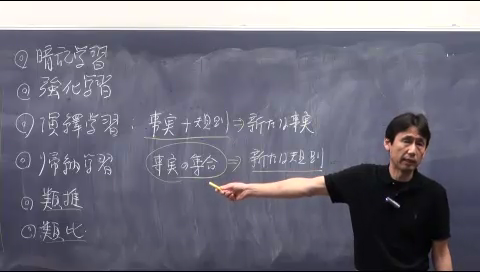 ◎ 暗記学習
◎ 強化学習
◎ 演繹学習：事実＋規則⇒新たな事実
◎ 帰納学習 事実の集合⇒新たな規則
◎ 類推
◎ 類比